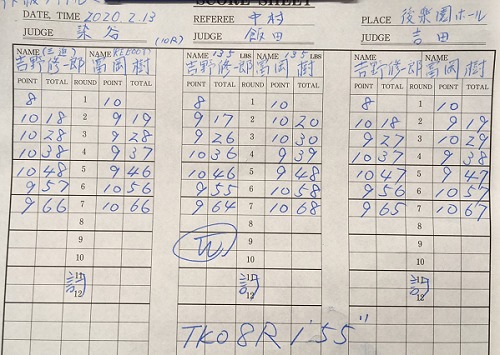 SCORE SHEET
DATE, TIME 2020.2.13 REFEREE 中村 PLACE 後樂園ホール
JUDGE 染谷 (10R) JUDGE 飯田 JUDGE 吉田
NAME (三迫) NAME REBOOT NAME 135 LBS NAME 135 LBS NAME NAME
吉野修一郎 富岡 樹 吉野修一郎 富岡 樹 吉野修一郎 富岡 樹
POINT TOTAL ROUND POINT TOTAL POINT TOTAL ROUND POINT TOTAL POINT TOTAL ROUND POINT TOTAL
8 1 10 8 1 10 8 1 10
10 18 2 9 19 9 17 2 10 20 10 18 2 9 19
10 28 3 9 28 9 26 3 10 30 9 27 3 10 29
10 38 4 9 37 10 36 4 9 39 10 37 4 9 38
10 48 5 9 46 10 46 5 9 48 10 47 5 9 47
9 57 6 10 56 9 55 6 10 58 9 56 6 10 57
9 66 7 10 66 9 64 7 10 68 9 65 7 10 67
8 8 8
9 W 9 9
10 10 10
11 11 11
12 12 12
TKO 8R 1'55"